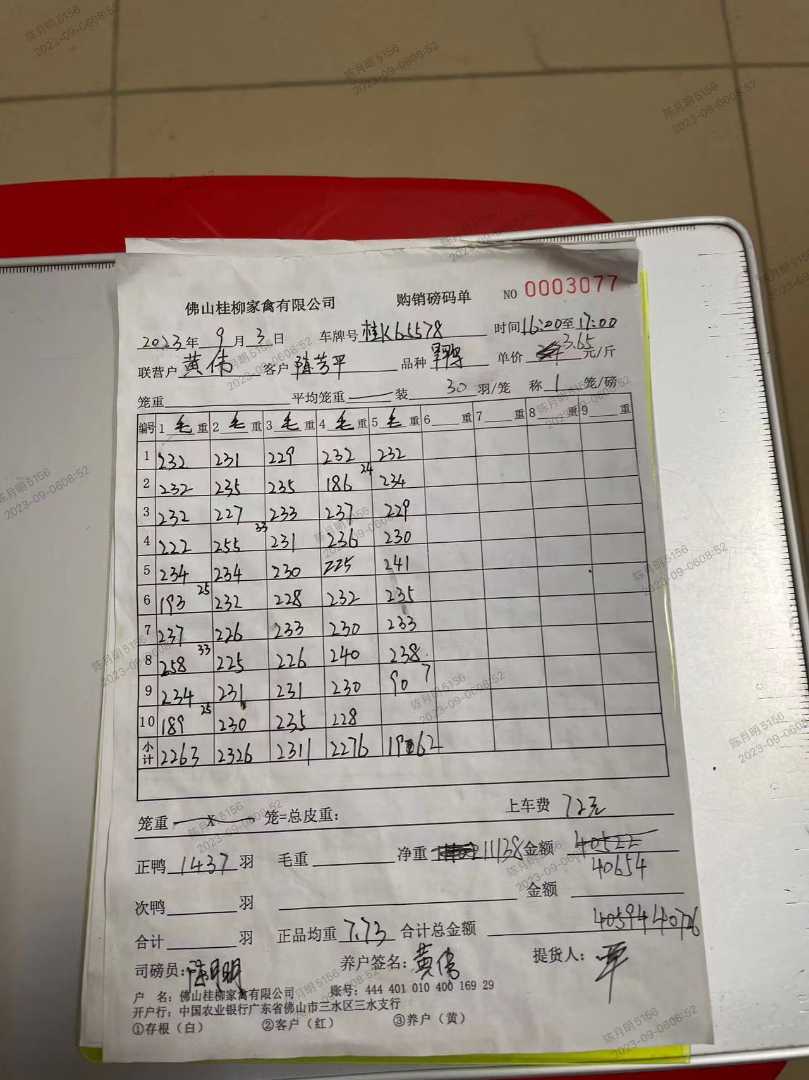 佛山桂柳家禽有限公司 购销磅码单 NO 0003077
2023年 9 月 3 日 车牌号 桂K65578 时间16:00至17:00
联营户 黄伟 客户 品种 单价 3.65 元/斤
笼重 平均笼重 — 装 30 羽/笼 称 1 笼/磅
编号 1 毛 重 2 毛 重 3 毛 重 4 毛 重 5 毛 重 6 重 7 重 8 重 9 重
1 232 231 229 232 232
2 232 235 235 186 24 234
3 232 227 233 237 229
4 222 255 33 231 236 230
5 234 234 230 225 241
6 193 25 232 228 232 235
7 237 226 233 230 233
8 258 33 225 226 240 238
9 234 231 231 230 90 7
10 189 25 230 235 228
小计 2263 2326 2311 2276 1962
笼重 — x — 笼=总皮重: 上车费 72元
正鸭 1437 羽 毛重 净重 11138 金额 40522
40654
次鸭 羽 金额
合计 羽 正品均重 7.73 合计总金额 40594 40726
司磅员: 陈月明 养户签名: 黄伟 提货人:
户 名: 佛山桂柳家禽有限公司 账号: 444 401 010 400 169 29
开户行: 中国农业银行广东省佛山市三水区三水支行
①存根（白） ②客户（红） ③养户（黄）
陈月明 5156
2023-09-06 08:52